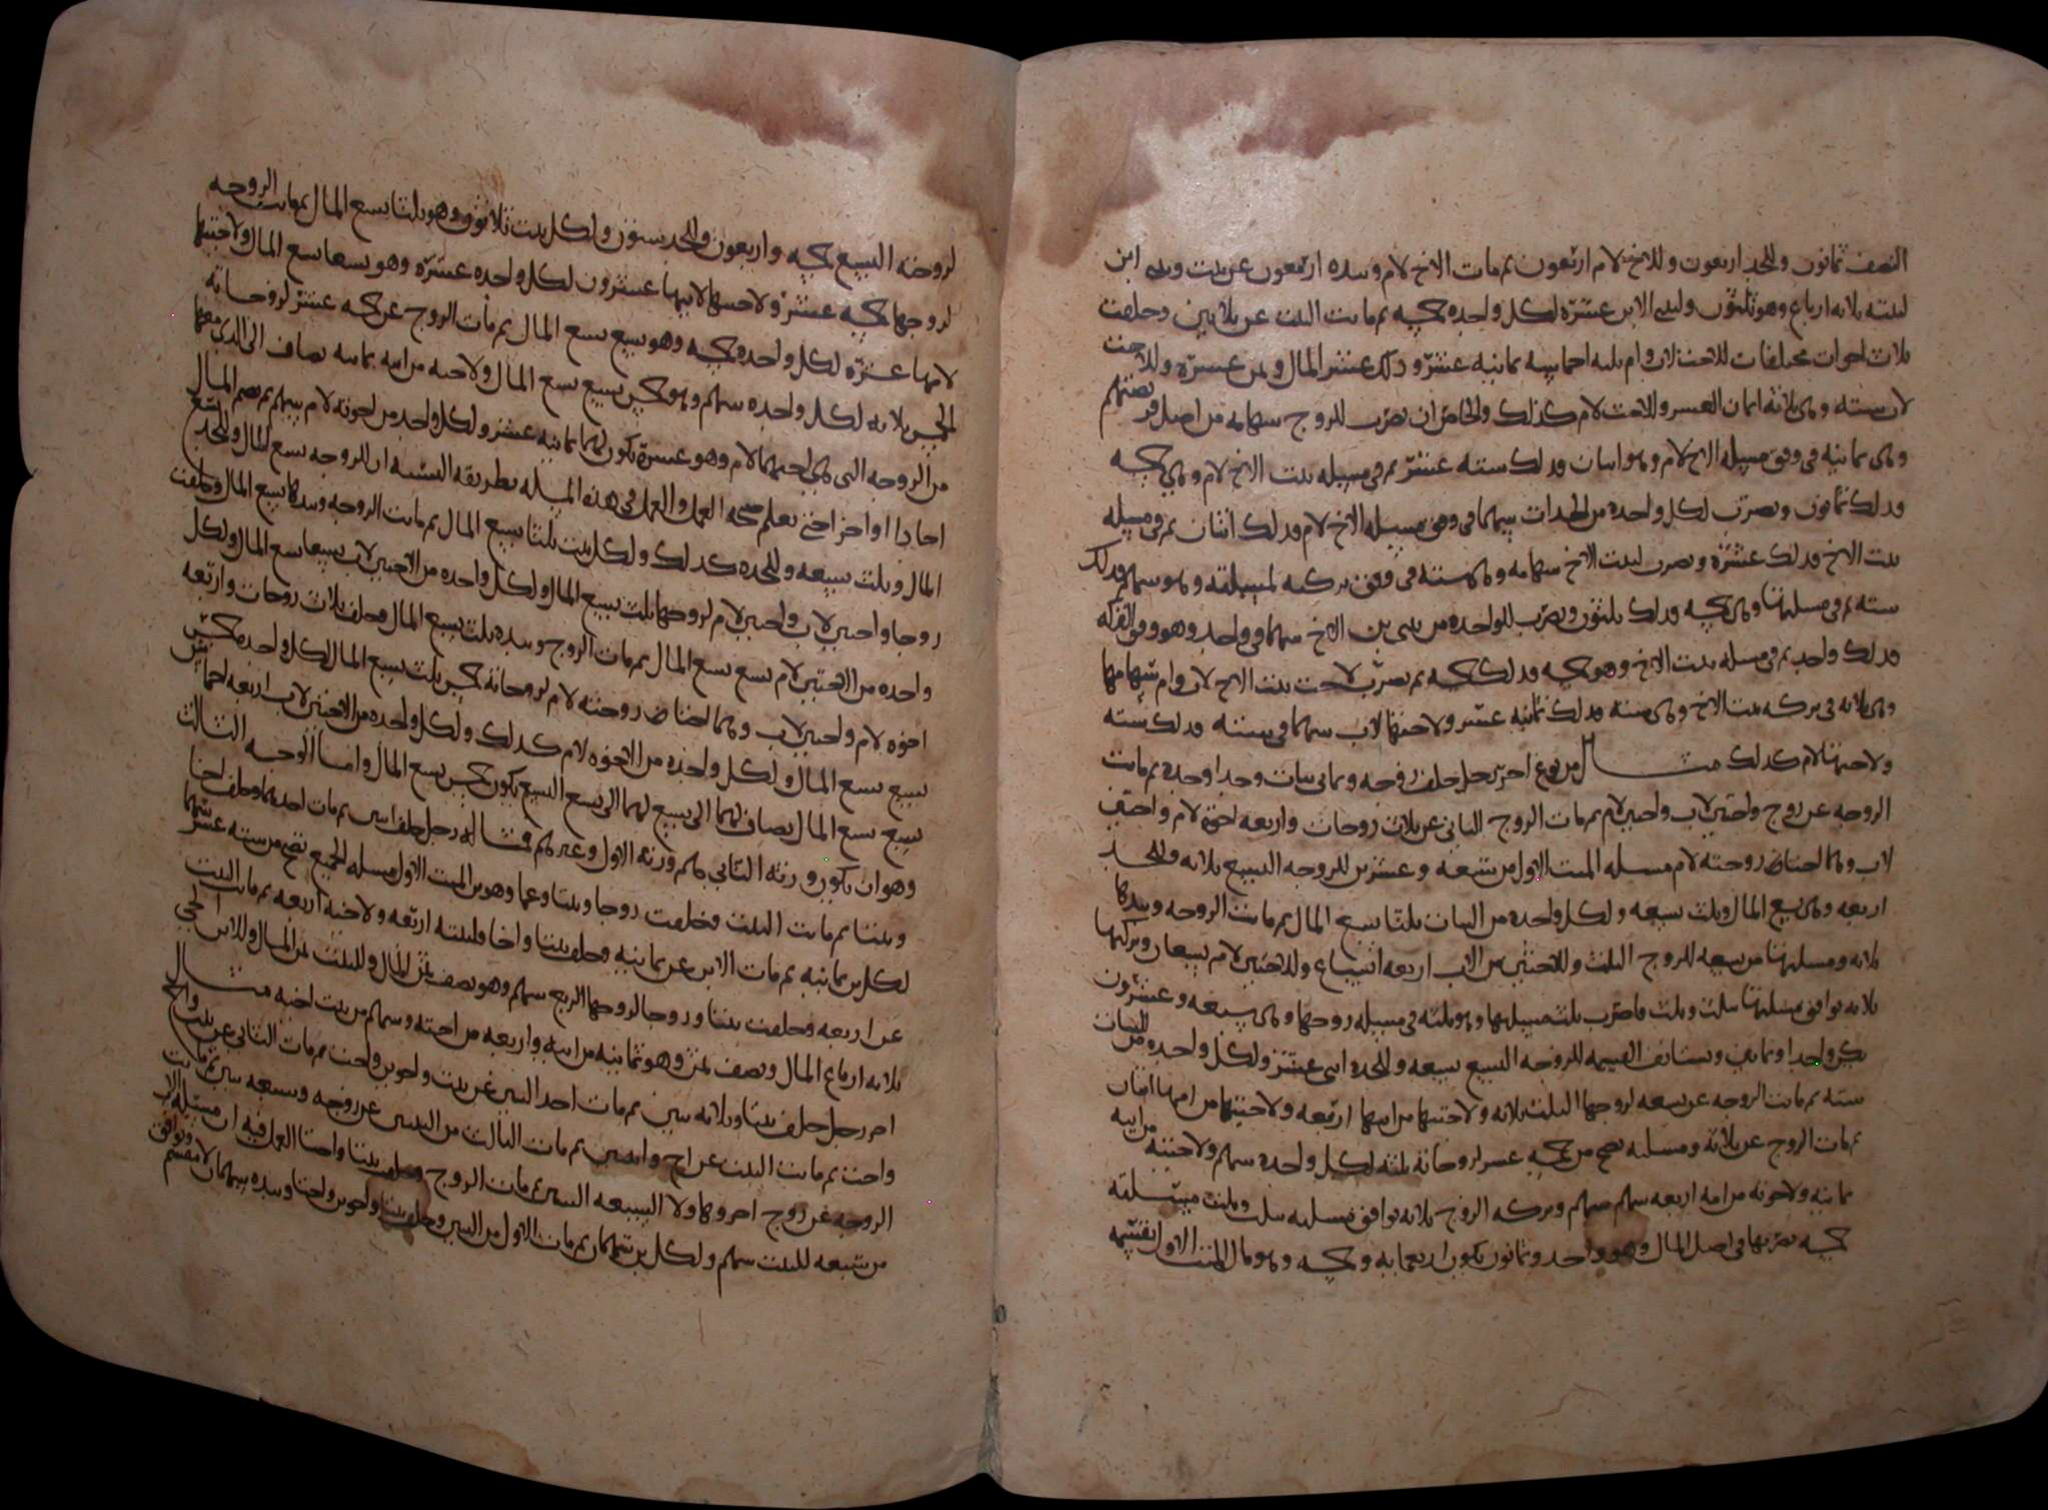 النصف ثمانون وللجد اربعون وللاخ لام اربعون ثم مات الاخ لام وبيده اربعون عن بنت وبنى ابن
لبنته ثلاثه ارباع وهو ثلثون ولبنى الابن عشرة لكل واحده خمسه ثم ماتت البنت عن ثلاثين وخلفت
ثلاث اخوات مختلفات للاخت لاب وام ثلثه اخماسه ثمانيه عشر و ذلك عشر المال وثمن عشره وللاخت
لاب سته وهى ثلاثة اثمان العشر وللاخت لام كذلك والخاص ان تضرب للزوج سهامه من اصل فريضتهم
وهى ثمانيه فى وفق مسيله الاخ لام وهو اثنان فذلك سته عشر ثم فى مسيله بنت الاخ لام وهى خمسه
فذلك ثمانون وتضرب لكل واحده من الجدات سهمها فى وفق مسيله الاخ لام فذلك اثنان ثم فى مسيله
بنت الاخ فذلك عشرة وتضرب لبنت الاخ سهامه وهى سته فى وفق تركته لمسيلته وهو سهم فذلك
سته ثم فى مسيلتها وهى خمسه فذلك ثلثون وتضرب للواحده من بنى بن الاخ سهمها فى واحد وهو وفق التركه
فذلك واحد ثم فى مسيله بنت الاخ وهو خمسه فذلك خمسه ثم تضرب لاخت بنت الاخ لاب وام سهامها
وهى ثلاثه فى تركه بنت الاخ وهى سته فذلك ثمانيه عشر ولاختها لاب سهمها فى سته فذلك سته
ولاختها لام كذلك مثال من نوع اخر رجل خلف زوجه وثمانى بنات وجدا وجده ثم ماتت
الزوجه عن زوج واختين لاب واختين لام ثم مات الزوج الثانى عن ثلاث زوجات واربعه اخوة لام واختين
لاب وهما اختا زوجته لام مسله الميت الاول من سبعه وعشرين للزوجه التسع ثلاثه وللجد
اربعه وهى تسع المال وثلث تسعه ولكل واحده من البنات ثلثا تسع المال ثم ماتت الزوجه وبيدها
ثلاثه ومسيلتها من تسعه للزوج الثلث وللاختين من الاب اربعه اتساع وللاختين لام تسعان وتركتها
ثلاثه توافق مسيلتها بثلث وثلث فاضرب ثلث مسيلتها وهو ثلثه فى مسيله زوجها وهى سبعه وعشرون
يكن واحدا وثمانين وتستانف القسمه للزوجه التسع تسعه وللجده اثنى عشر ولكل واحده من البنات
سته ثم ماتت الزوجه عن تسعه لزوجها الثلث ثلاثه ولاختيها من ابيها اربعه ولاختيها من امها اثنان
ثم مات الزوج عن ثلاثه ومسيلته تصح من خمسه عشر لزوجاته ثلثه لكل واحده سهم ولاختيه من ابيه
ثمانيه ولاخوته من امه اربعه سهم سهم وتركه الزوج ثلاثه توافق مسيلته بثلث وثلث مسيلته
خمسه تضربها فى اصل المال وهو واحد وثمانون يكون اربعمايه وخمسه وهو مال الميت الاول تقسمه
لزوجته التسع خمسه واربعون وللجد ستون ولكل بنت ثلاثون وهو ثلثا تسع المال ثم ماتت الزوجه
لزوجها خمسه عشر ولاختيها لابيها عشرون لكل واحده عشرة وهو تسعا تسع المال ولاختيها
لامها عشرة لكل واحده خمسه وهو تسع تسع المال ثم مات الزوج عن خمسه عشر لزوجاته
الخمس ثلاثه لكل واحده سهم وهو خمس تسع تسع المال ولاختيه من ابيه ثمانيه تضاف الى الذى معهما
من الزوجه التى هى اختهما لام وهو عشرة يكون لهما ثمانيه عشر ولكل واحد من اخوته لام سهم ثم تضم المال
احادا او اخر اختى تعلم صحه العمل والعمل فى هذه المسله بطريقه النسبه ان للزوجه تسع المال وللجد تسع
المال وثلث تسعه وللجده كذلك ولكل بنت ثلثا تسع المال ثم ماتت الزوجه وبيدها تسع المال وخلفت
زوجا واختين لاب واختين لام لزوجها ثلث تسع المال ولكل واحده من الاختين لاب تسعا تسع المال ولكل
واحده من الاختين لام تسع تسع المال ثم مات الزوج وبيده ثلث تسع المال وخلف ثلاث زوجات واربعه
اخوه لام واختين لاب وهما اختا زوجته لام لزوجاته خمس ثلث تسع المال لكل واحده خمس
تسع تسع المال ولكل واحده من الاخوه لام كذلك ولكل واحده من الاختين لاب اربعه اخماس
تسع تسع المال يضاف لهما الى تسع لهما الى تسع التسع يكون خمس تسع المال واما الوجه الثالث
وهو ان يكون ورثه الثانى هم ورثه الاول وغيرهم فمثاله رجل خلف ابنين ثم مات احدهما وخلف اخا
وبنتا ثم ماتت البنت وخلفت زوجا وبنتا وعما وهو بن الميت الاول مسله الجميع تصح من سته عشر سهما
لكل بن ثمانيه ثم مات الابن عن ثمانيه وخلف بنتا واخا فلبنته اربعه ولاخيه اربعه ثم ماتت البنت
عن اربعه وخلفت بنتا وزوجا لزوجها الربع سهم وهو نصف ثمن المال وللبنت ثمن المال وللابن الحى
ثلاثه ارباع المال ونصف ثمن وهو ثمانيه من ابيه واربعه من اخيه وسهم من بنت اخيه مثال
اخر رجل خلف بنتا وثلاثه بنين ثم مات احد البنين عن بنت واخوين واخت ثم مات الثانى عن بنت واخ
واخت ثم ماتت البنت عن اخ وابنين ثم مات الثالث من البنين عن زوجه وسبعه بنين ثم ماتت
الزوجه عن زوج اخر وهاولا السبعه البنين ثم مات الزوج وخلف بنتا واختا العمل فيه ان مسيله الاب
من سبعه للبنت سهم ولكل بن سهمان ثم مات الاول من البنين وخلف بنتا واخوين واختا وبيده سهمان لا تنقسم وتوافق